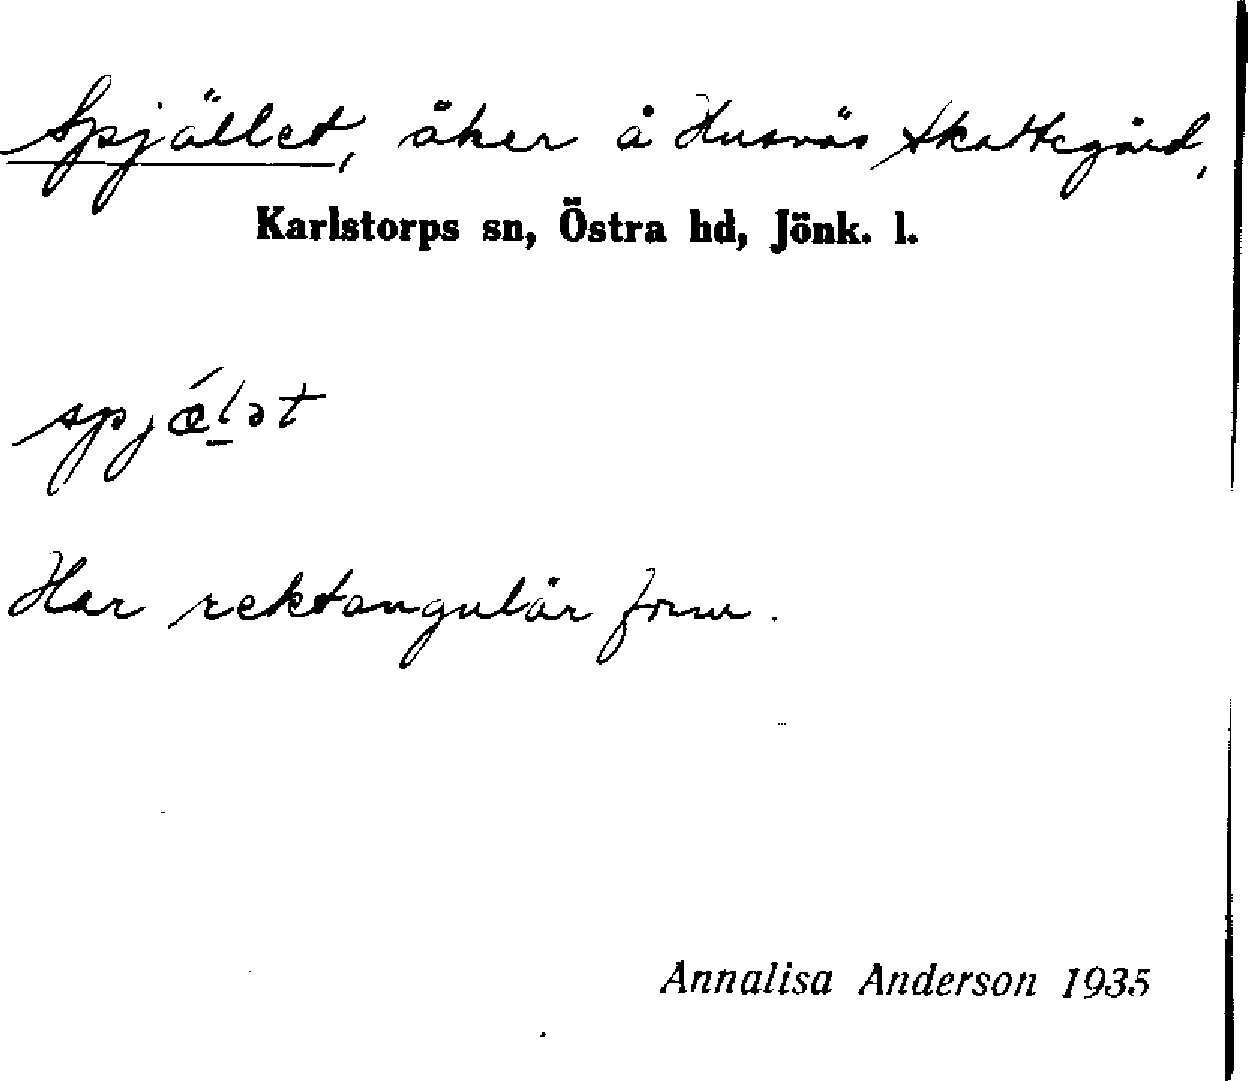 Spjället, åker å Husnäs Skattegård,
Karlstorps sn, Östra hd, Jönk. l.
spjǽl̠ət
Har rektangulär form.
Annalisa Anderson 1935